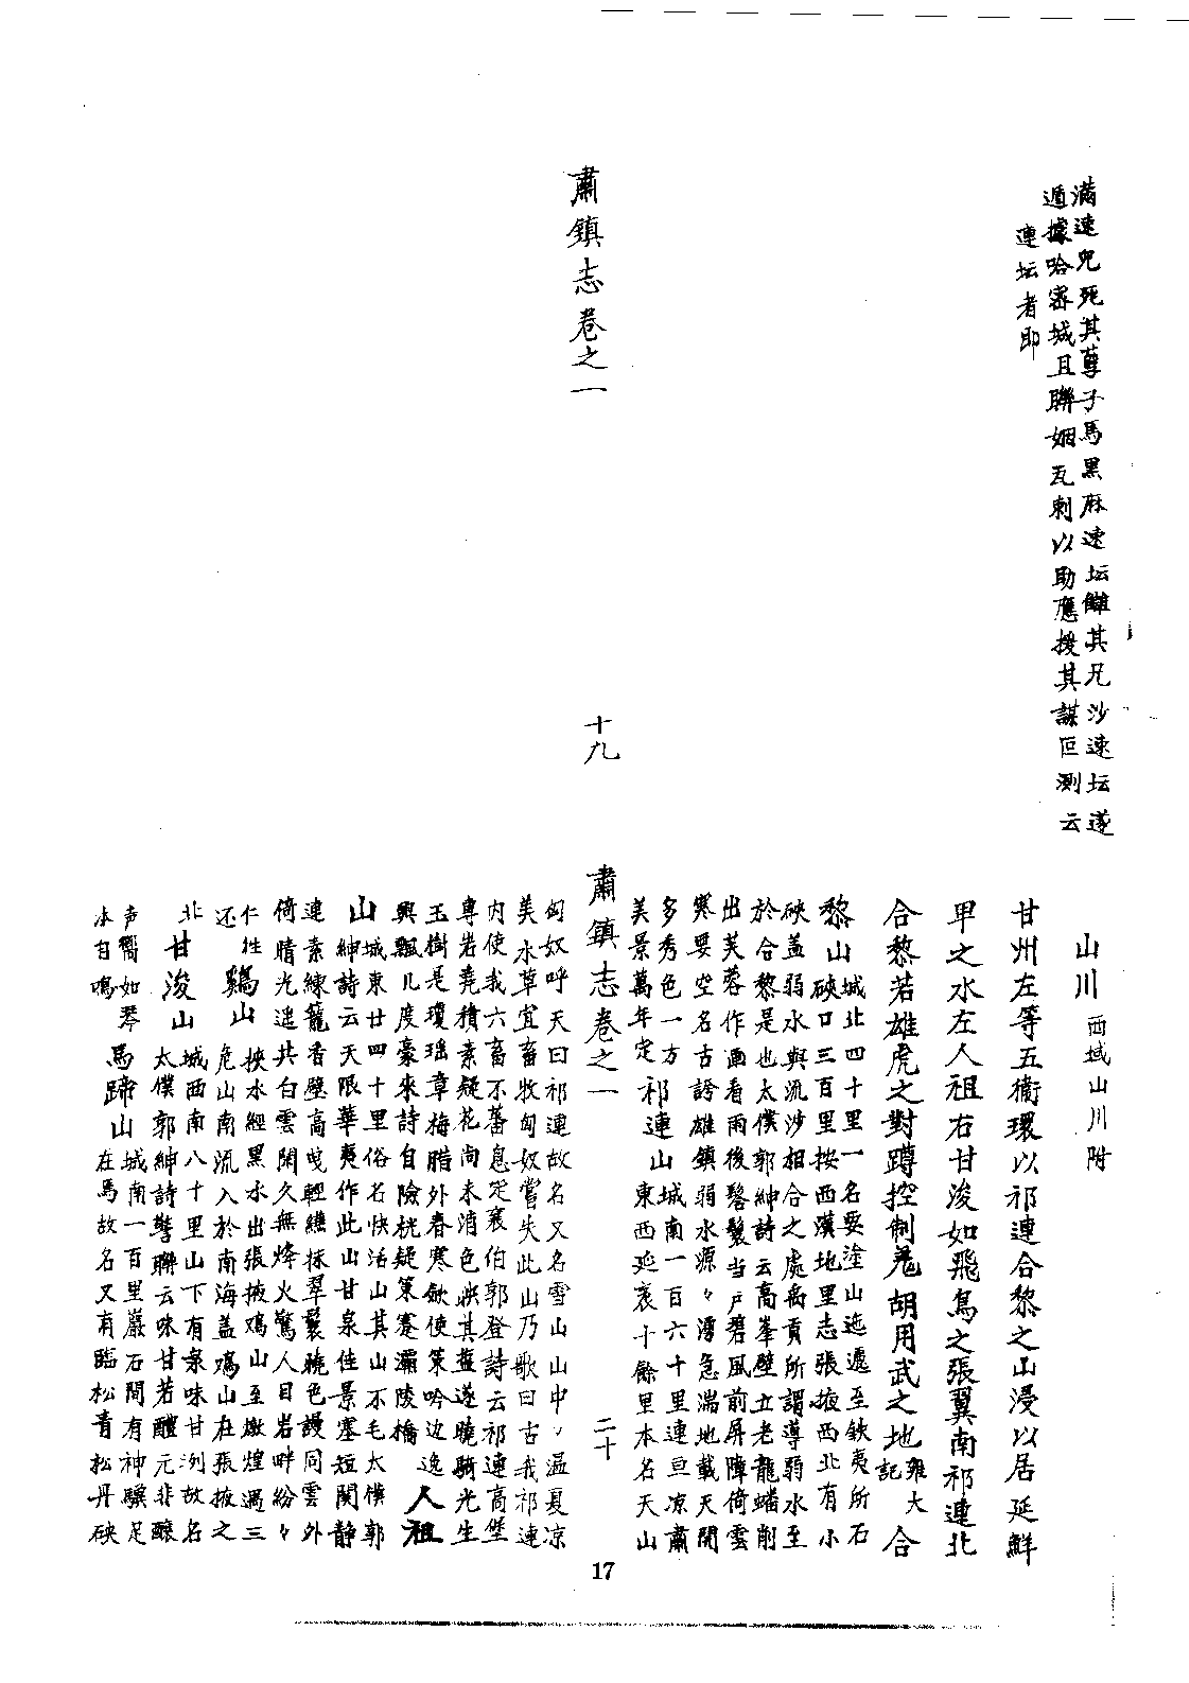 滿速兒死其孽子馬黑麻速坛讎其兄沙速坛遂
遁據哈密城且聯姻瓦剌以助應援其謀叵測云
速坛者耶
肅鎮志卷之一
十九
山川西域山川附
甘州左等五衞環以祁連合黎之山浸以居延鮮
甲之水左人祖右甘浚如飛鳥之張翼南祁連北
合黎若雄虎之對蹲控制羗胡用武之地雍大
記
合
黎山城北四十里一名要塗山迤邐至鉄夷所石
硤口三百里按西漢地里志張掖西北有小
硤盖弱水與流沙相合之處禹貢所謂導弱水至
於合黎是也太僕郭紳詩云高峯壁立老龍蟠削
出芙蓉作画看雨後髻鬟当戸碧風前屏障倚雲
寒要空名古誇雄鎮弱水源々湧急湍地載天開
多秀色一方
美景萬年定
祁連山城南一百六十里連亘凉肅
東西延袤十餘里本名天山
肅鎮志卷之一
二十
匈奴呼天曰祁連故名又名雪山山中冬温夏凉
美水草宜畜牧匈奴嘗失此山乃歌曰古我祁連
内使我六畜不蕃息定襄伯郭登詩云祁連高堡
專岩堯積素疑花尚未消色映其盔遂曉騎光生
玉樹是瓊瑶章梅腊外春寒歛使策吟边逸
興飄几度豪來詩自險桄疑策蹇灞陵橋
人祖
山城東廿四十里俗名快活山其山不毛太僕郭
紳詩云天限華夷作此山甘泉佳景塞短関静
連素練籠香壁高曵輕縴抹翠鬟曉色謾同雲外
倚晴光遥共白雲閑久無烽火驚人目岩畔紛々
仁牲
还
鷄山挾水經黑水出張掖鸡山至燉煌過三
危山南流入於南海盖鸡山在張掖之
北
甘浚山城西南八十里山下有泉味甘冽故名
太僕郭紳詩警聯云味甘若醴元非釀
声嚮如琴
本自鳴
馬蹄山城南一百里巖石間有神驥足
在馬故名又有臨松青松丹硤
17